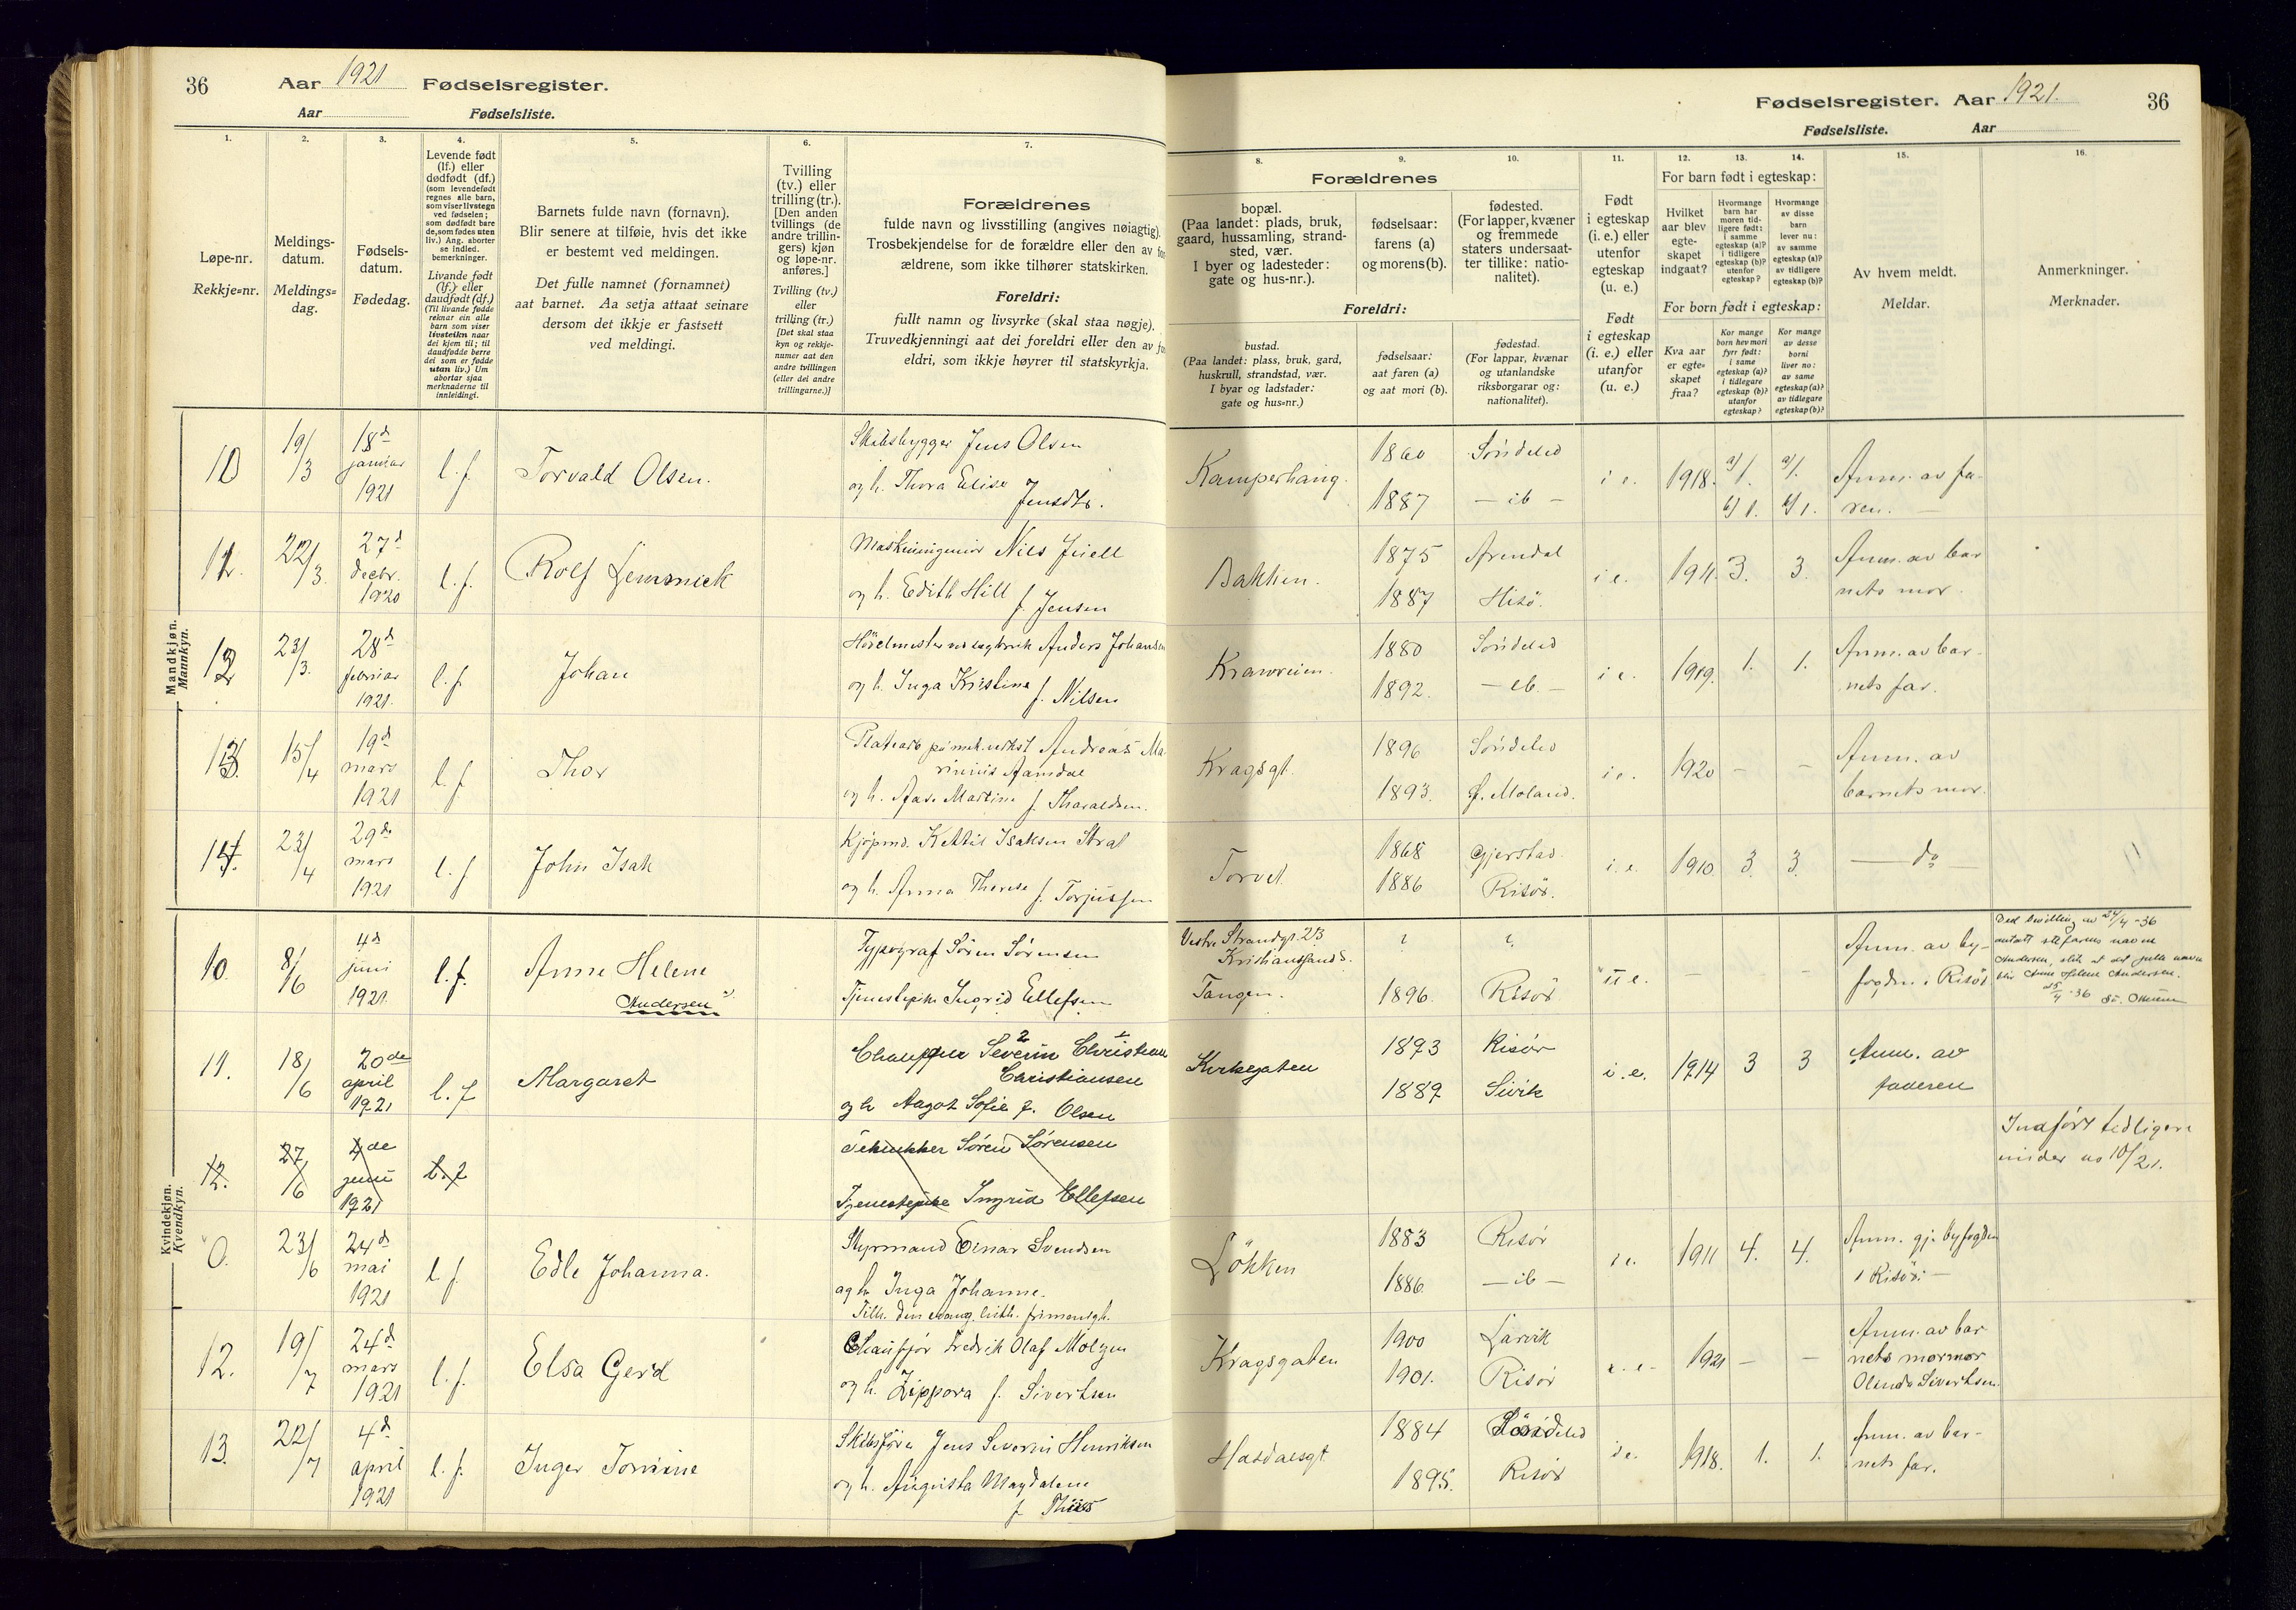 36
Aar 1921 Fødselsregister.
Aar
Fødselsliste.
1.
2.
3.
4.
5.
6.
7.
Løpe-nr.
Rekkje-nr.
Meldings-
datum.
Meldings-
dag.
Fødsels-
datum.
Fødedag.
Levende født
(lf.) eller
dødfødt (df.)
(som levendefødt
regnes alle barn,
som viser livstegn
ved fødselen;
som dødfødt bare
de, som fødes uten
liv.) Ang. aborter
se indled.
bemerkninger.
Livande født
(lf.) eller
daudfødt (df.)
(Til livande fødde
reknar ein alle
barn som viser
livsteikn naar
dei kjem til; til
daudfødde berre
dei som er fødde
utan liv.) Um
abortar sjaa
merknaderne til
innleidingi.
Barnets fulde navn (fornavn).
Blir senere at tilføie, hvis det ikke
er bestemt ved meldingen.
Det fulle namnet (fornamnet)
aat barnet. Aa setja attaat seinare
dersom det ikkje er fastsett
ved meldingi.
Tvilling
(tv.) eller
trilling (tr.).
[Den anden
tvillings (de
andre trillin-
gers) kjøn
og løpe-nr.
anføres.]
Tvilling (tv.)
eller
trilling (tr.)
[Det skal staa
kyn og rekkje-
numer aat den
andre tvillingen
(eller dei andre
trillingarne.)]
Forældrenes
fulde navn og livsstilling (angives nøiagtig).
Trosbekjendelse for de forældre eller den av for
ældrene, som ikke tilhører statskirken.
Foreldri:
fullt namn og livsyrke (skal staa nøgje).
Truvedkjenningi aat dei foreldri eller den av fo
eldri, som ikkje høyrer til statskyrkja.
Fødselsregister. Aar 1921.
36
Fødselsliste.
Aar
8.
9.
10.
11.
12.
13.
14.
15.
16.
Forældrenes
bopæl.
(Paa landet: plads, bruk,
gaard, hussamling, strand-
sted, vær.
I byer og ladesteder:
gate og hus-nr.).
fødselsaar:
farens (a)
og morens (b).
fødested.
(For lapper, kvæner
og fremmede
staters undersaat-
ter tillike: natio-
nalitet).
Foreldri:
bustad.
(Paa landet: plass, bruk, gard,
huskrull, strandstad, vær.
I byar og ladstader:
gate og hus-nr.)
fødselsaar:
aat faren (a)
og aat mori (b).
fødestad.
(For lappar, kvænar
og utanlandske
riksborgarar og:
nationalitet).
Født
i egteskap
(i. e.) eller
utenfor
egteskap
(u. e.)
Født
i egteskap
(i. e.) eller
utanfor
(u. e.)
For barn født i egteskap:
Hvilket
aar blev
egte-
skapet
indgaat?
Hvormange
barn har
moren tid-
ligere født:
i samme
egteskap (a)?
i tidligere
egteskap (b)?
utenfor
egteskap?
Hvormange
av disse
barn
lever nu:
av samme
egteskap (a)?
av tidligere
egteskap (b)?
For born født i egteskap:
Kva aar
er egte-
skapet
fraa?
Kor mange
born hev mori
fyrr født:
i same
egteskap (a)?
i tidlegare
egteskap (b)?
utanfor
egteskap?
Kor mange
av desse
borni
liver no:
av same
egteskap (a)?
av tidlegare
egteskap (b)?
Av hvem meldt.
Meldar.
Anmerkninger.
Merknader.
Mandkjøn.
Mannkyn.
10 19/3 18d januar 1921 l. f. Torvald Olsen.
Skibsbygger Jens Olsen
og h. Thora Elise Jensdtr.
Kamperhaug. 1860 Søndeled
1887 — ib — i e. 1918. a/1. b/1. a/1. b/1. Anm. av fa-
ren.
11. 22/3. 27d decbr. 1920 l. f. Rolf
Maskiningeniør Nils Juell
og h. Edith Hill f. Jensen
Bakken. 1875 Arendal
1887 Hisø. i e. 1911. 3. 3. Anm. av bar
nets mor.
12 23/3. 28d februar 1921. l. f. Johan
Anders Johansen
og h. Inga Kristine f. Nilsen
Kranveien. 1880 Søndeled
1892. — ib. — i e. 1919. 1. 1. Anm. av bar-
nets far.
13. 15/4 19d mars 1921 l. f. Thor
Platearb på mek. verkst Andreas Ma-
rinius Aamdal
og h. Aase Martine f. Tharaldsen.
Kragsgt. 1896 Søndeled
1893. Ø. Moland. i e. 1920 – – Anm. av
barnets mor.
14. 23/4 29de mars 1921 l. f John Isak
Kjøpmd. Kettil Isaksen Strat
og h. Anna Therese f. Torjussen
Torvet. 1868 Gjerstad.
1886 Risör. i. e. 1910. 3. 3. — do —
Kvindekjøn.
Kvendkyn.
10. 8/6 4d juni 1921. l. f. Anne Helene
Andersen
Typograf Søren Sørensen
Tjenestepike Ingrid Ellefsen
Vestre Strandgt. 23
Kristianssand S. ? ?
Tangen. 1896. Risör u e. – – Anm. av by-
fogden i Risör.
Ved bevilling av 24/4 -36
antatt stefarens navn
Andersen, slik at det fulle navn
blir Anne Helene Andersen.
25/4 -36
11. 18/6 20de april 1921 l. f Margaret
Chauffeur Severin Christian
Christiansen
og h Aagot Sofie f. Olsen
Kirkegaten 1893 Risør
1889 Sivik i. e. 1914 3 3 Anm. av
faderen
12. 27/6 4de juni 1921 l. f
Søren Sørensen
Tjenestepike Ingrid Ellefsen
Indført tidligere
under no 10/21.
0. 23/6 24d mai 1921 l. f. Edle Johanna.
Styrmand Einar Svendsen
og h. Inga Johanne.
Tilh. den evang. luth. frimenigh.
Løkken 1883 Risør
1886. — ib — i e. 1911 4. 4. Anm. gj. byfogden
i Risör –
12. 19/7 24d mars 1921 l. f. Elsa Gerd
Chaufför Fredrik Olaf Molzen
og h. Zippora f. Sivertsen
Kragsgaten 1900 Larvik
1901. Risör i. e. 1921 – – Anm. av bar
nets mormor
Olinda Sivertsen.
13. 22/7 4d april 1921 l. f. Inger Tomine
Skibsfører Jens Severin Henriksen
og h. Augusta Magdalene
f. Thiis
Hasdalsgt. 1884 Søndeled
1895. Risör i e. 1918. 1. 1. Anm. av bar-
nets far.